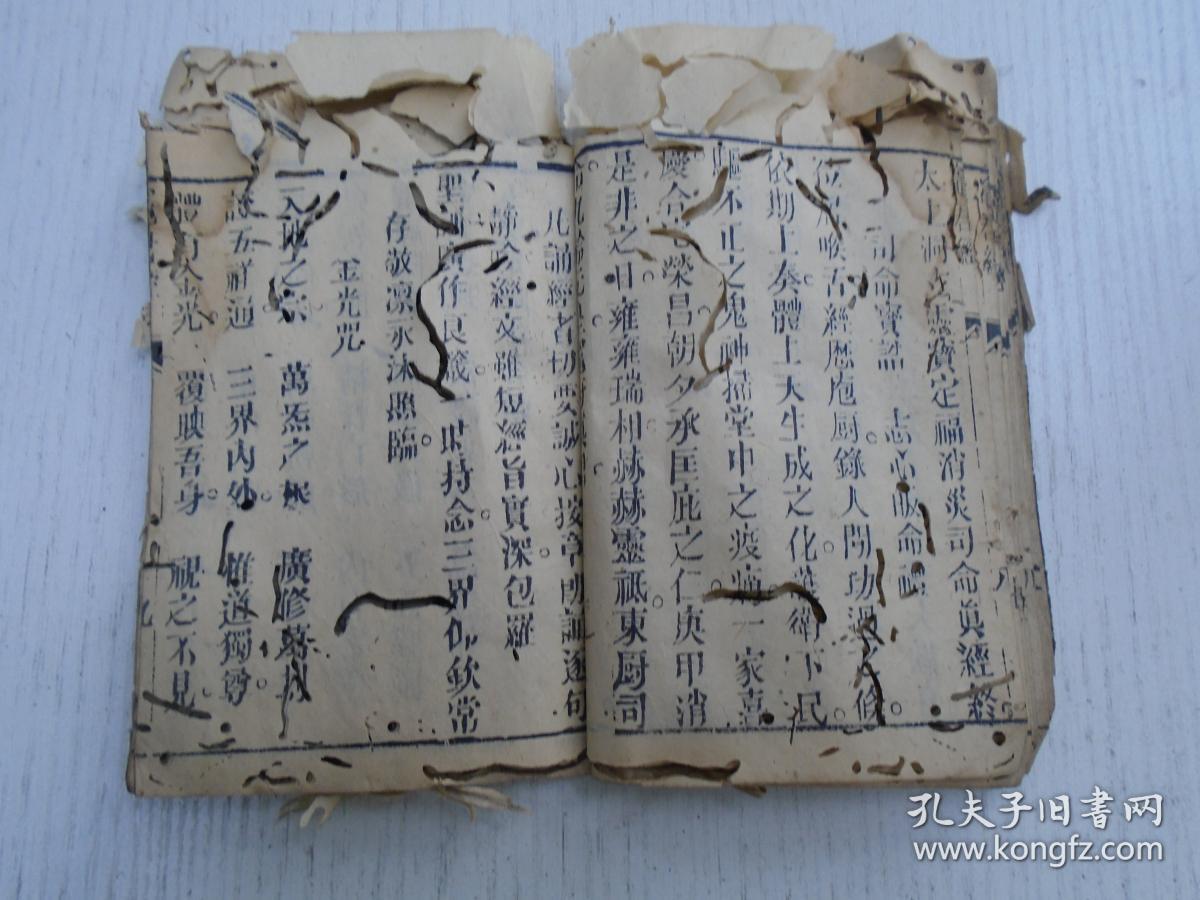 太上洞玄靈寶定福消災司命眞經終
司命寶誥 志心皈命禮
喉舌經歴庖厨錄人間功過
依期上奏體上天生成之化 衛下民
驅不正之鬼神掃堂中之疫 一家喜
慶合宅榮昌朝夕承匡庇之仁庚甲消
是非之目雍雍瑞相赫赫靈祗東厨司
凡誦經者切要誠心按章朗誦逐句
靜吟經文雖短經旨實深包羅
聖 良 一時持念三界仰欽常
存敬凜永沐照臨
金光咒
天地之宗 萬炁之根 廣修
五 通 三界內外 惟道獨尊
體有金光 覆映吾身 視之不見
孔夫子旧书网
www.kongfz.com